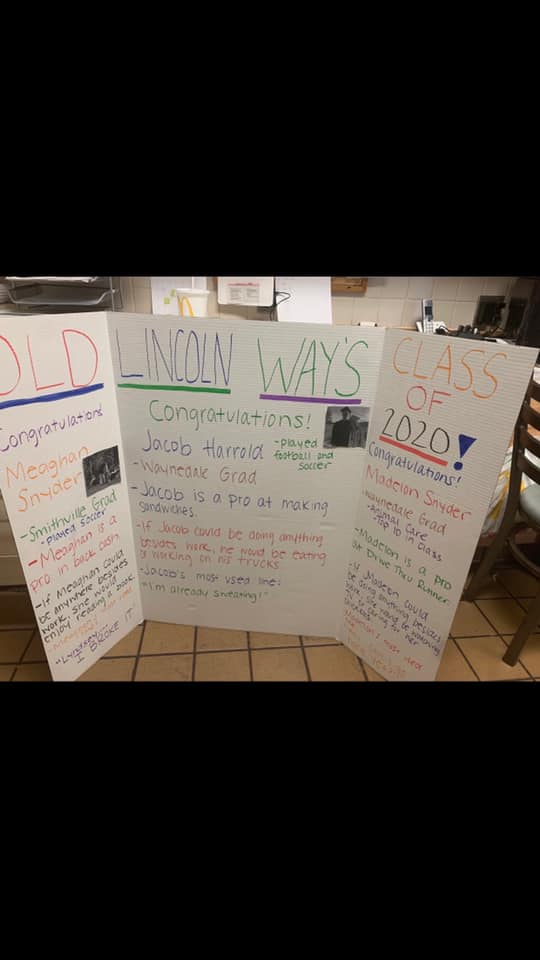 OLD LINCOLN WAY'S
CLASS
OF
2020!
Congratulations
Meaghan
Snyder
-Smithville Grad
-Played Soccer
-Meaghan is a
pro in back cash
-If Meaghan could
be anywhere besides
work, she would
enjoy reading a book.
"Lyndsey...
I BROKE IT"
Congratulations!
Jacob Harrold
-played
football and
soccer
-Waynedale Grad
-Jacob is a pro at making
sandwiches.
-If Jacob could be doing anything
besides work, he would be eating
or working on his trucks.
-Jacob's most used line:
"I'm already sweating!"
Congratulations!
Madelon Snyder
-Waynedale Grad
-Animal Care
-Top 10 in Class
-Madelon is a pro
at Drive Thru Runner
-If Madelon could
be doing anything besides
work, she would be watching
TV or caring for her
chickens